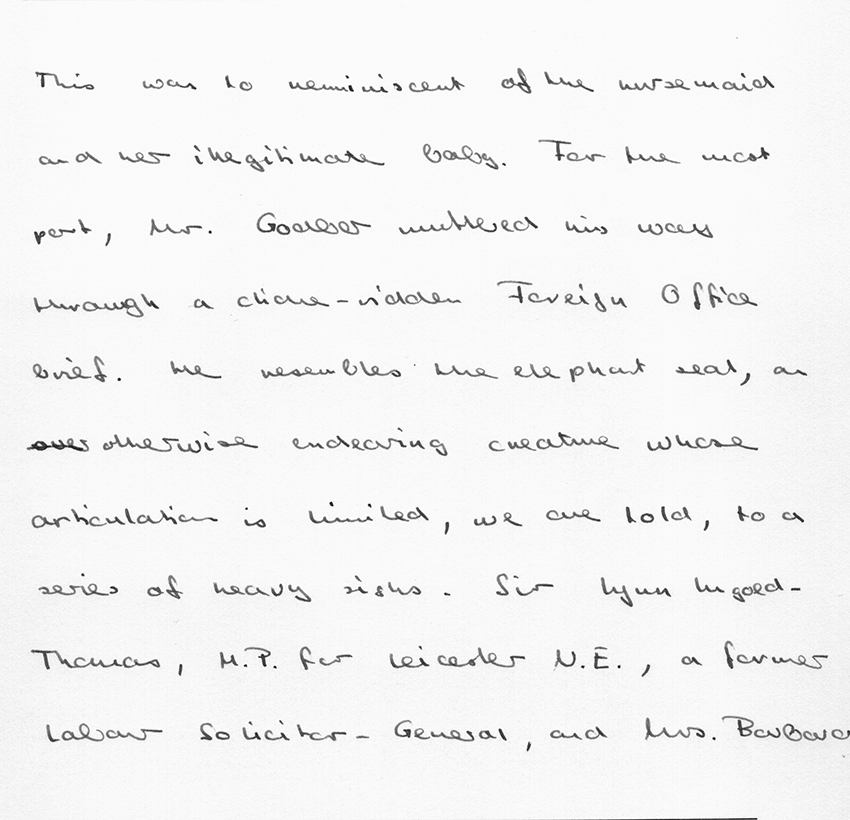 This was to reminiscent of the nursemaid
and her illegitimate baby. For the most
part, Mr. Godber muttered his way
through a cliche-ridden Foreign Office
brief. He resembles the elephant seal, an
otherwise endearing creature whose
articulation is limited, we are told, to a
series of heavy sighs. Sir Lynn Ungoed-
Thomas, M.P. for Leicester N.E., a former
Labour Solicitor-General, and Mrs. Barbara